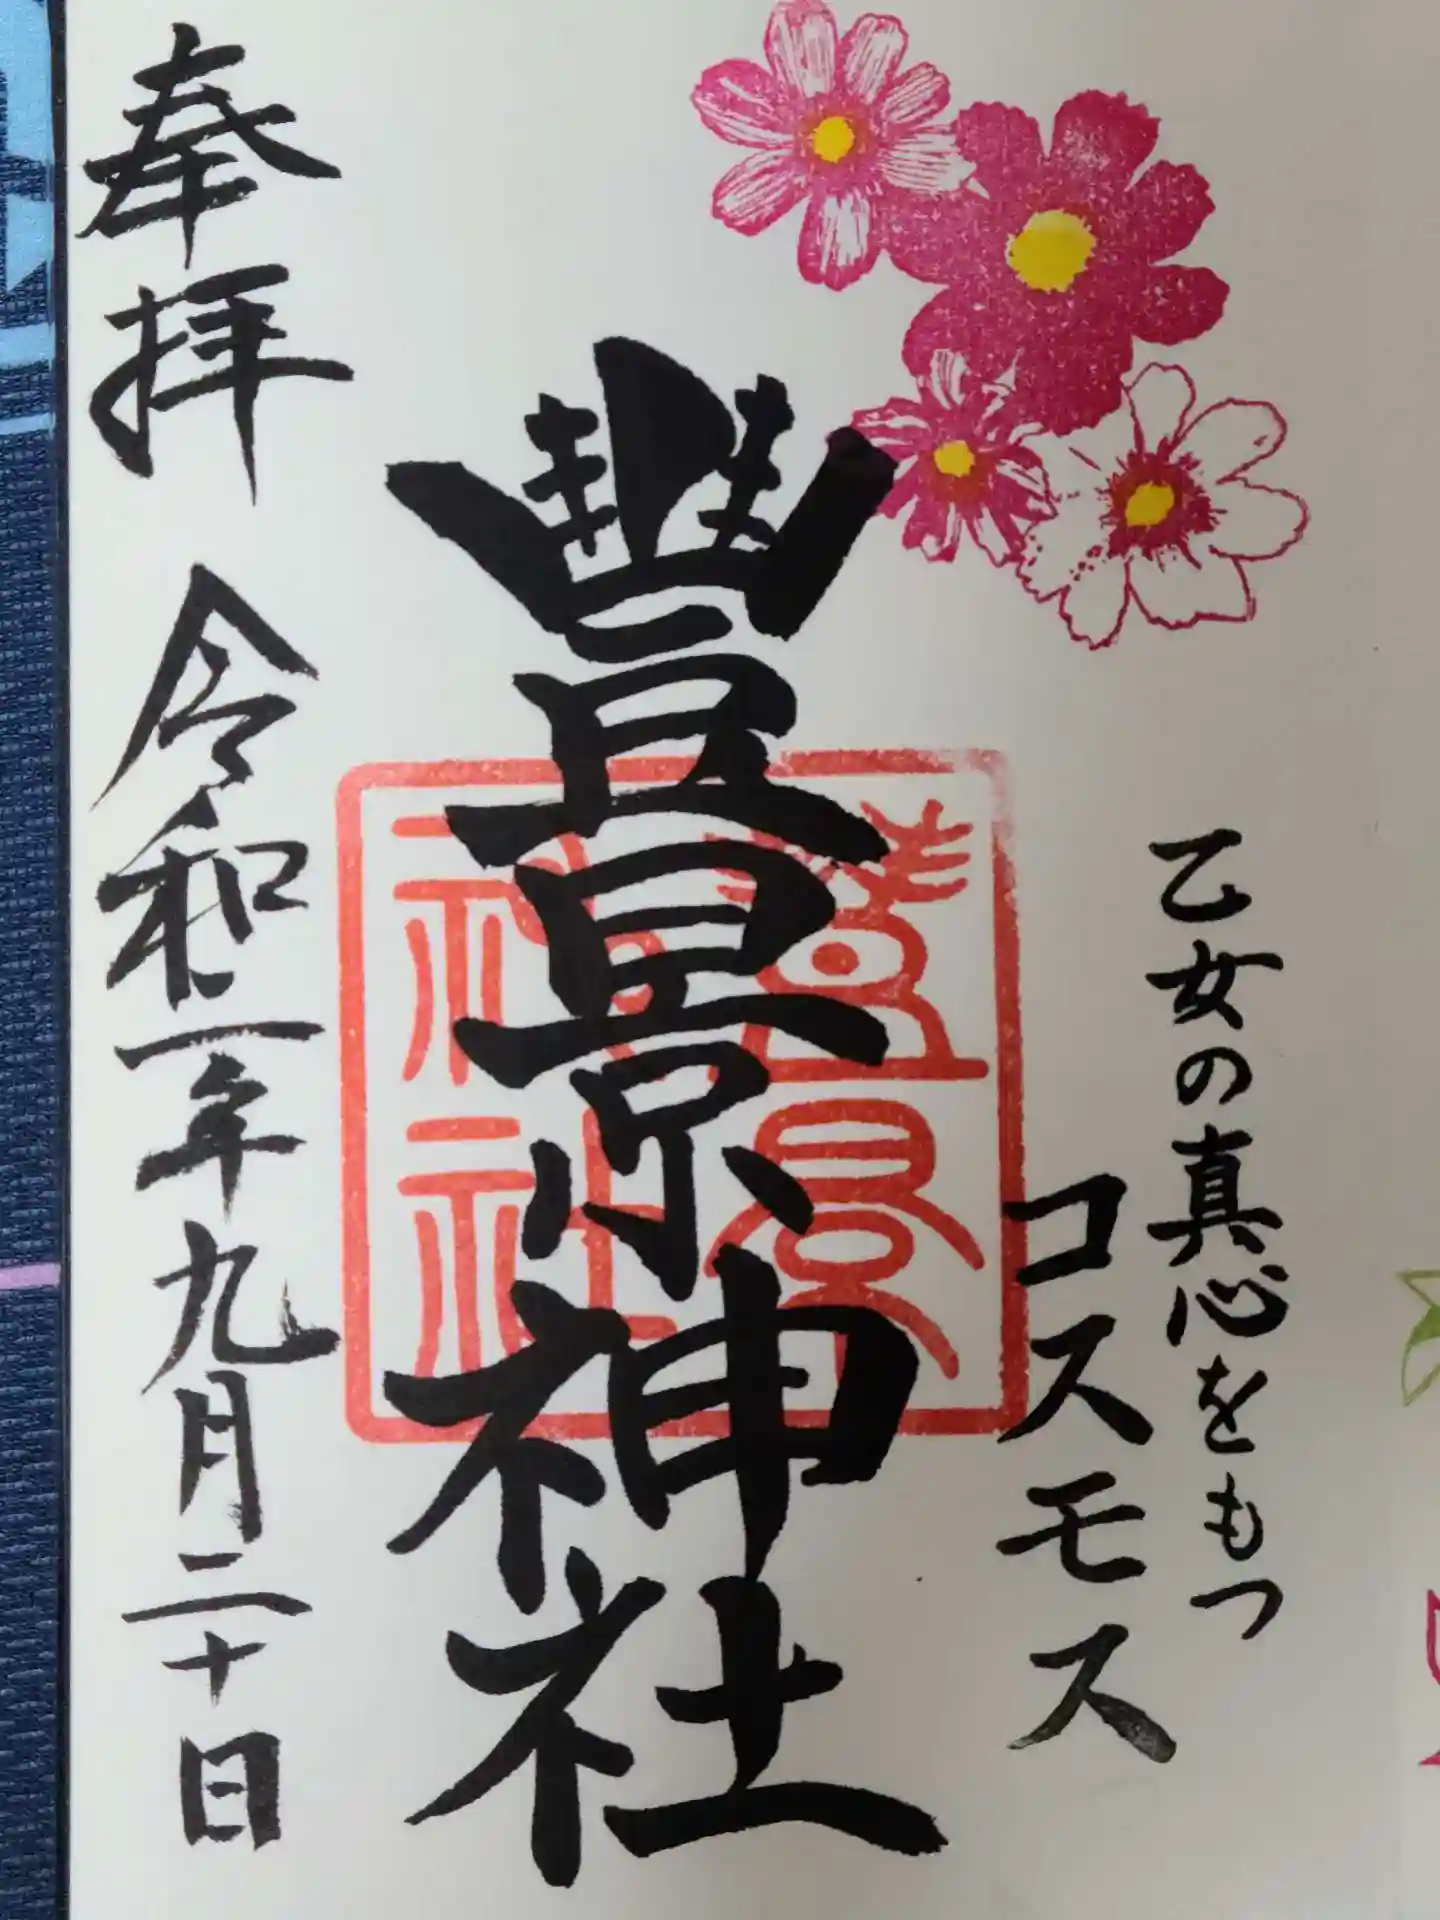 乙女の真心をもつ
コスモス
豊景神社
豊景
神社
奉拝
令和二年九月二十日